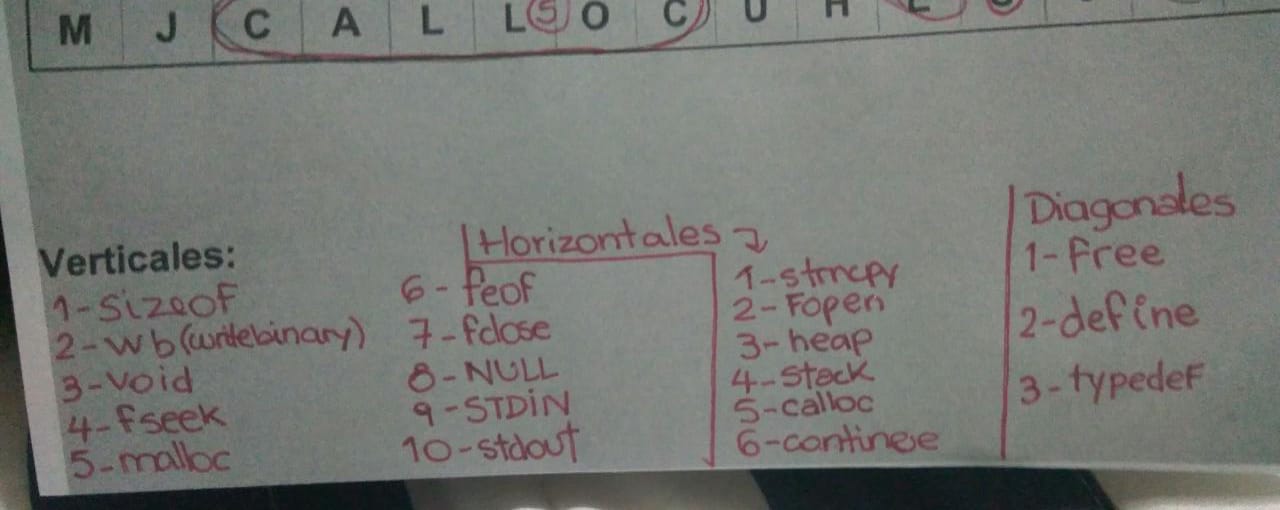 M J C A L L S O C U H
Verticales:
1-sizeof
2-wb(writebinary)
3-void
4-fseek
5-malloc
6-feof
7-fclose
8-NULL
9-STDIN
10-stdout
Horizontales
1-strncpy
2-Fopen
3-heap
4-stack
5-calloc
6-continese
Diagonales
1-free
2-define
3-typedef